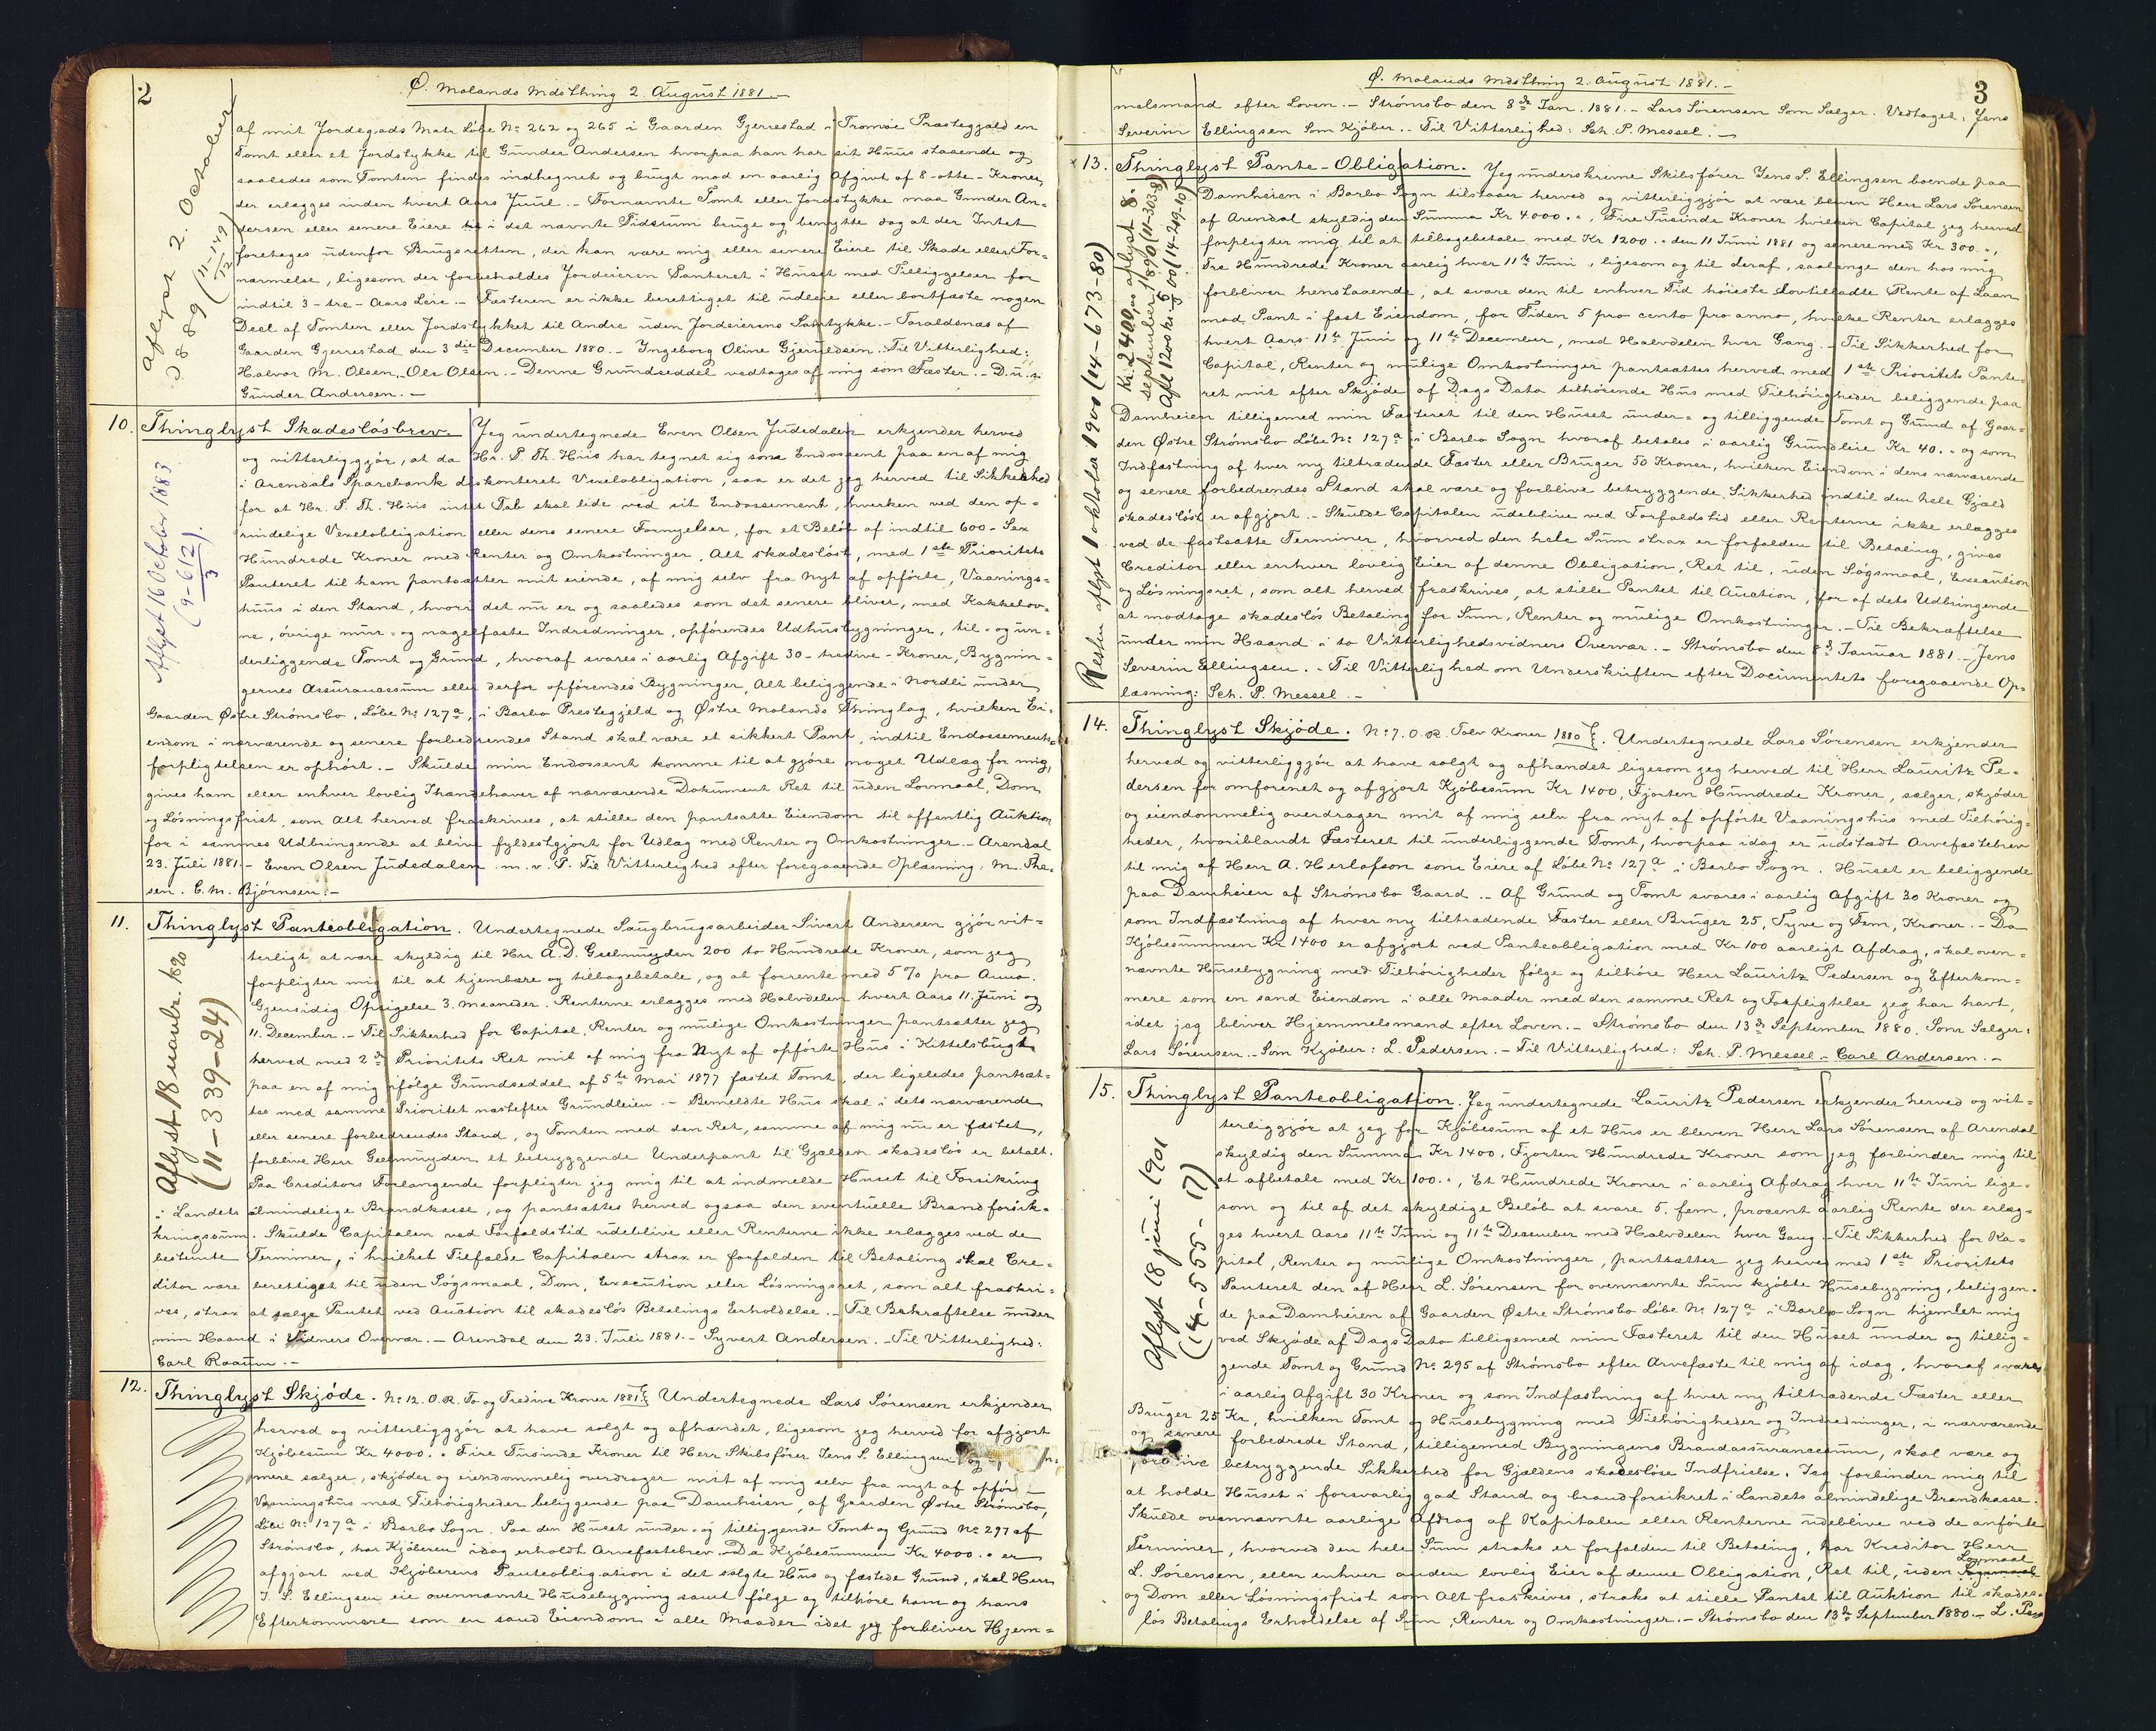 2
Ø. Molands Mdsthing 2. August 1881.-
af mit Jordegods Matr. Løbe No 262 og 265 i Gaarden Gjerrestad i Tromøe Præstegjæld en
Tomt eller et Jordstykke til Gunder Andersen hvorpaa han har sit Huus staaende og
saaledes som Tomten findes indhegnet og brugt mod en aarlig Afgivt af 8-otte-Kroner,
der erlægges inden hvert Aars Juul.- Fornævnte Tomt eller Jordstykke maa Gunder An-
dersen eller senere Eiere i det nævnte Tidsrum bruge og benytte dog at der Intet
foretages udenfor Brugsretten, der kan være mig eller senere Eiere til Skade eller For-
nærmelse, ligesom der forbeholdes Jordeieren Panteret i Huset med Tilliggelser for
indtil 3-tre-Aars Leie.- Fæsteren er ikke berettiget til udleie eller bortfæste nogen
Deel af Tomten eller Jordstykket til Andre uden Jordeierens Samtykke.- Toraldsnæs af
Gaarden Gjerrestad den 3die December 1880.- Ingeborg Oline Gjeruldsen. Til Vitterlighed:
Halvor M. Olsen,- Ole Olsen.- Denne Grundseddel vedtages af mig som Fæster.- D. u. s.
Gunder Andersen.-
Aflyst 2. October
1889 (11-149/12)
10. Thinglyst Skadesløsbrev Jeg undertegnede Even Olsen Judedalen erkjender herved
og vitterliggjør, at da Hr. P. Th. Hiis har tegnet sig som Endossent paa en af mig
i Arendals Sparebank diskonteret Vexelobligation, saa er det jeg herved til Sikkerhed
for at Hr. P. Th. Hiis intet Tab skal lide ved sit Endossement, hverken ved den op-
rindelige Vexelobligation eller dens senere Fornyelser, for et Beløb af indtil 600-Sex
Hundrede Kroner med Renter og Omkostninger, Alt skadesløst, med 1ste Prioritets
Panteret til ham pantsætter mit eiende, af mig selv fra Nyt af opførte, Vaanings-
huus i den Stand, hvori det nu er og saaledes som det senere bliver, med Kakkelov-
ne, øvrige mur- og nagelfaste Indredninger, opførendes Udhusbygninger, til- og un-
derliggende Tomt og Grund, hvoraf svares i aarlig Afgift 30-tredive-Kroner, Bygnin-
gernes Assurancesum eller derfor opførendes Bygninger, Alt beliggende i Nordli under
Gaarden Østre Strømsbo, Løbe No 127a, i Barbo Prestegjeld og Østre Molands Thinglag, hvilken Ei-
endom i nærværende og senere forbedrendes Stand skal være et sikkert Pant, indtil Endossements-
forpligtelsen er ophørt.- Skulde min Endossent komme til at gjøre noget Udlæg for mig,
gives ham eller enhver lovlig Ihændehaver af nærværende Dokument Ret til uden Lovmaal, Dom
og Løsningsfrist, som Alt herved fraskrives, at stille den pantsatte Eiendom til offentlig Auktion
for i sammes Udbringende at blive fyldestgjort for Udlæg med Renter og Omkostninger.- Arendal
23. Juli 1881.- Even Olsen Judedalen m. v. P. Til Vitterlighed efter foregaaende Oplæsning: M. The-
sen. C. M. Bjørnsen.-
Aflyst 16 October 1883
(9-612/3).
11. Thinglyst Panteobligation. Undertegnede Saugbrugsarbeider Sivert Andersen gjør vit-
terligt at være skyldig til Herr A. D. Geelmuyden 200 to Hundrede Kroner, som jeg
forpligter mig til at hjembære og tilbagebetale, og at forrente med 5% pro Anno.
Gjensidig Opsigelse 3. Maaneder. Renterne erlægges med Halvdelen hvert Aars 11. Juni og
11. December.- Til Sikkerhed for Capital, Renter og mulige Omkostninger pantsætter jeg
herved med 2den Prioritets Ret mit af mig fra Nyt af opførte Hus i Kittelsbugt
paa en af mig ifølge Grundseddel af 5te Mai 1877 fæstet Tomt, der ligeledes pantsæt-
tes med samme Prioritet næstefter Grundleien.- Bemeldte Hus skal i dets nærværende
eller senere forbedrendes Stand, og Tomten med den Ret, samme af mig nu er fæstet,
forblive Herr Geelmuyden et betryggende Underpant til Gjælden skadesløs er betalt.
Paa Creditors Forlangende forpligter jeg mig til at indmelde Huset til Forsikring
i Landets almindelige Brandkasse, og pantsættes herved ogsaa den eventuelle Brandforsik-
kringssum. Skulde Capitalen ved Forfaldstid udeblive eller Renterne ikke erlægges ved de
bestemte Terminer, i hvilket Tilfælde Capitalen strax er forfalden til Betaling skal Cre-
ditor være berettiget til uden Søgsmaal, Dom, Execution eller Løsningsret, som alt fraskri-
ves, strax at sælge Pantet ved Auction til skadesløs Betalings Erholdelse.- Til Bekræftelse under
min Haand i Vidners Overvær.- Arendal den 23. Juli 1881.- Syvert Andersen.- Til Vitterlighed:
Carl Raaum.-
Aflyst 18 novbr. 1890
(11-339-24)
12. Thinglyst Skjøde. No 12. O. R. To og Tredive Kroner 1881. Undertegnede Lars Sørensen erkjender
herved og vitterliggjør at have solgt og afhændet, ligesom jeg herved for afgjort
Kjøbesum Kr 4000.. Fire Tusinde Kroner til Herr Skibsfører Jens S. Ellingsen og
mere sælger, skjøder og eiendommelig overdrager mit af mig selv fra nyt af opfør
Vaaningshus med Tilhørigheder beliggende paa Damheien, af Gaarden Østre Strømsbo,
Løbe No 127a i Barbo Sogn. Paa den Huset under- og tilliggende Tomt og Grund No 297 af
Strømsbo, har Kjøberen idag erholdt Arvefæstebrev.- Da Kjøbesummen Kr 4000.. er
afgjort ved Kjøberens Panteobligation i det solgte Hus og fæstede Grund, skal Herr
J. S. Ellingsen eie ovennævnte Husebygning samt følge og tilhøre ham og hans
Efterkommere som en sand Eiendom i alle Maader idet jeg forbliver Hjem-
3
Ø. Molands Mdsthing 2. August 1881.-
melsmand efter Loven.- Strømsbo den 8de Jan. 1881.- Lars Sørensen Som Sælger. Vedtaget: Jens
Severin Ellingsen Som Kjøber.- Til Vitterlighed: Sch. P. Messel.-
13. Thinglyst Pante-Obligation. Jeg underskrevne Skibsfører Jens S. Ellingsen boende paa
Damheien i Barbo Sogn tilstaaer herved og vitterliggjør at være bleven Herr Lars Sørensen
af Arendal skyldig den Summa Kr 4000.., Fire Tusinde Kroner hvilken Capital jeg herved
forpligter mig til at tilbagebetale med Kr 1200.. den 11 Juni 1881 og senere med Kr 300..,
Tre Hundrede Kroner aarlig hver 11te Juni, ligesom og til deraf, saalænge den hos mig
forbliver henstaaende, at svare den til enhver Tid høieste lovtilladte Rente af Laan
mod Pant i fast Eiendom, for Tiden 5 pro cento pro anno, hvilke Renter erlægges
hvert Aars 11te Juni og 11te December, med Halvdelen hver Gang.- Til Sikkerhed for
Capital, Renter og mulige Omkostninger pantsættes herved med 1ste Prioritets Pante-
ret mit efter Skjøde af Dags Dato tilhørende Hus med Tilhørigheder beliggende paa
Damheien tilligemed min Fæsteret til den Huset under- og tilliggende Tomt og Grund af Gaar-
den Østre Strømsbo Løbe No 127a i Barbo Sogn hvoraf betales i aarlig Grundleie Kr 40.. og som
Indfæstning af hver ny tiltrædende Fæster eller Bruger 50 Kroner, hvilken Eiendom i dens nærværende
og senere forbedrendes Stand skal være og forblive betryggende Sikkerhed indtil den hele Gjæld
skadesløst er afgjort.- Skulde Capitalen udeblive ved Forfaldstid eller Renterne ikke erlægges
ved de fastsatte Terminer, hvorved den hele Sum strax er forfalden til Betaling, gives
Creditor eller enhver lovlig Eier af denne Obligation, Ret til, uden Søgsmaal, Execution
og Løsningsret, som alt herved fraskrives, at stille Pantet til Auction, for af dets Udbringende
at modtage skadesløs Betaling for Sum, Renter og mulige Omkostninger.- Til Bekræftelse
under min Haand i to Vitterlighedsvidners Overvær.- Strømsbo den 8de Januar 1881.- Jens
Severin Ellingsen.- Til Vitterlighed om Underskriften efter Documentets foregaaende Op-
læsning: Sch. P. Messel.-
Kr. 2400,00 aflyst 8.
september 1890 (11-303-8)
Afl 1200 kr. 6/3 00 (14-249-10)
Resten aflyst 1 oktober 1900 (14-673-80)
14. Thinglyst Skjøde. No 7. O. R. Tolv Kroner 1880. Undertegnede Lars Sørensen erkjender
herved og vitterliggjør at have solgt og afhændet ligesom jeg herved til Herr Lauritz Pe-
dersen for omforenet og afgjort Kjøbesum Kr 1400, Fjorten Hundrede Kroner, sælger, skjøder
og eiendommelig overdrager mit af mig selv fra nyt af opførte Vaaningshus med Tilhørig-
heder, hvoriblandt Fæsteret til underliggende Tomt, hvorpaa idag er udstædt Arvefæstebrev
til mig af Herr A. Herlofson som Eiere af Løbe No 127a i Barbo Sogn. Huset er beliggende
paa Damheien af Strømsbo Gaard.- Af Grund og Tomt svares i aarlig Afgift 30 Kroner og
som Indfæstning af hver ny tiltrædende Fæster eller Bruger 25, Tyve og Fem, Kroner.- Da
Kjøbesummen Kr 1400 er afgjort ved Panteobligation med Kr 100 aarligt Afdrag, skal oven-
nævnte Husebygning med Tilhørigheder følge og tilhøre Herr Lauritz Pedersen og Efterkom-
mere som en sand Eiendom i alle Maader med den samme Ret og Forpligtelse jeg har havt,
idet jeg bliver Hjemmelsmand efter Loven.- Strømsbo den 13de September 1880. Som Sælger:
Lars Sørensen.- Som Kjøber: L. Pedersen.- Til Vitterlighed: Sch. P. Messel.- Carl Andersen.-
15. Thinglyst Panteobligation. Jeg undertegnede Lauritz Pedersen erkjender herved og vit-
terliggjør at jeg for Kjøbesum af et Hus er bleven Herr Lars Sørensen af Arendal
skyldig den Summa Kr 1400, Fjorten Hundrede Kroner som jeg forbinder mig til
at afbetale med Kr 100.., Et Hundrede Kroner i aarlig Afdrag hver 11te Juni lige-
som og til af det skyldige Beløb at svare 5, fem, procent aarlig Rente der erlæg-
ges hvert Aars 11te Juni og 11te Desember med Halvdelen hver Gang.- Til Sikkerhed for Ka-
pital, Renter og mulige Omkostninger, pantsætter jeg herved med 1ste Prioritets
Panteret den af Herr L. Sørensen for ovennævnte Sum kjøbte Husebygning, beliggen-
de paa Damheien af Gaarden Østre Strømsbo Løbe No 127a i Barbo Sogn hjemlet mig
ved Skjøde af Dags Dato tilligemed min Fæsteret til den Huset under og tillig-
gende Tomt og Grund No 295 af Strømsbo efter Arvefæste til mig af idag, hvoraf svares
i aarlig Afgift 30 Kroner og som Indfæstning af hver ny tiltrædende Fæster eller
Bruger 25 Kr, hvilken Tomt og Husebygning med Tilhørigheder og Indredninger, i nærværende
og senere forbedrede Stand, tilligemed Bygningens Brandassurancesum, skal være og
forblive betryggende Sikkerhed for Gjældens skadesløse Indfrielse. Jeg forbinder mig til
at holde Huset i forsvarlig god Stand og brandforsikret i Landets almindelige Brandkasse.
Skulde ovennævnte aarlige Afdrag af Kapitalen eller Renterne udeblive ved de anførte
Terminer, hvorved den hele Sum straks er forfalden til Betaling, har Kreditor Herr
L. Sørensen, eller enhver anden lovlig Eier af denne Obligation, Ret til, uden Lovmaal
og Dom eller Løsningsfrist som Alt fraskrives, straks at stille Pantet til Auktion til skades-
løs Betalings Erholdelse af Sum, Renter og Omkostninger.- Strømsbo den 13de September 1880.- L. Peder
Aflyst 18 juni 1901
(14-555-17)